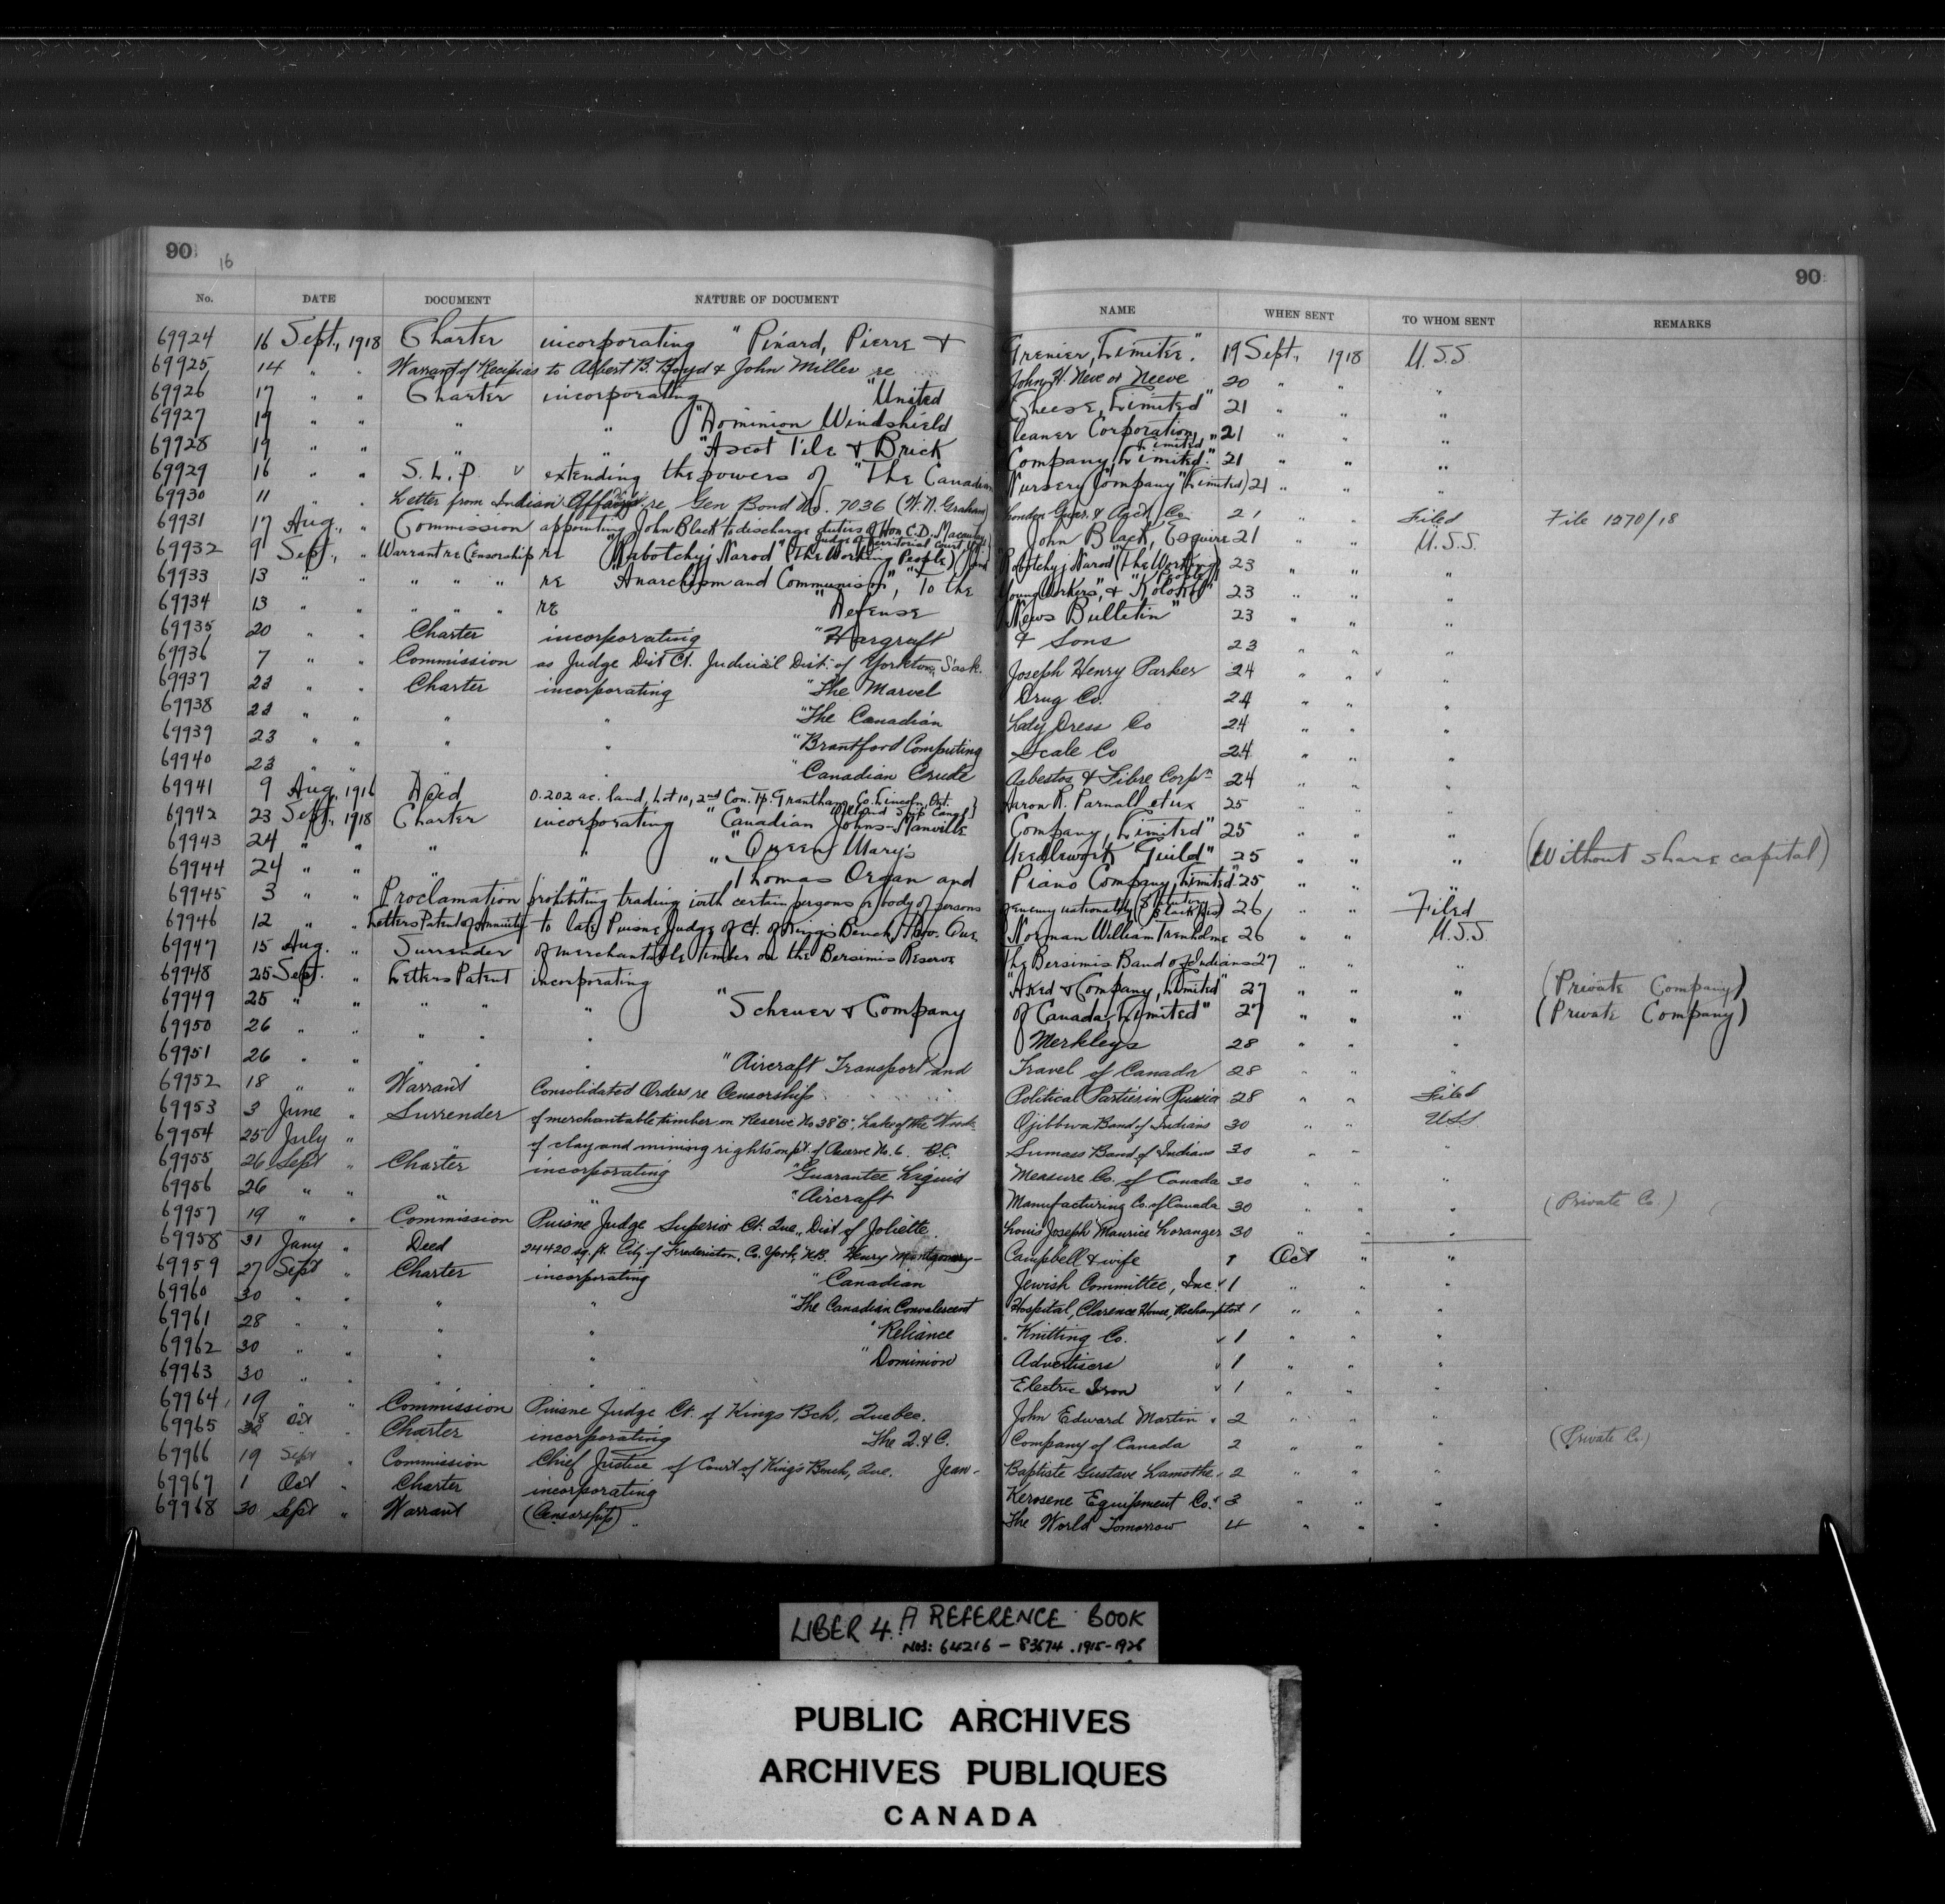 90 16 90
No. DATE DOCUMENT NATURE OF DOCUMENT NAME WHEN SENT TO WHOM SENT REMARKS
69924 16 Sept., 1918 Charter incorporating "Pinard, Pierre & Grenier, Limitée." 19 Sept., 1918 U.S.S.
69925 14 " " Warrant of Recipias to Albert B. Boyd & John Miller re John H. Neve or Neeve 20 " " "
69926 17 " " Charter incorporating "United Cheese, Limited" 21 " " "
69927 19 " " " " "Dominion Windshield Cleaner Corporation, Limited" 21 " " "
69928 19 " " " " "Ascot Tile & Brick Company, Limited." 21 " " "
69929 16 " " S.L.P. v extending the powers of "The Canadian Nursery Company" (Limited) 21 " " "
69930 11 " " Letter from Indian Affairs re Gen Bond No. 7036 (W. N. Graham) London Guar. & Acct. Co. 21 " " Filed File 1570/18
69931 17 Aug., " Commission appointing John Black to discharge duties of Hon. C. D. Macaulay, Judge of Territorial Court, John Black, Esquire 21 " " U.S.S.
69932 9 Sept., " Warrant re Censorship re "Rabotchyj Narod" (The Working People) "Rabotchyj Narod" (The Working People) 23 " " "
69933 13 " " " " " re "Anarchism and Communism", "To the Young Workers", & 23 " " "
69934 13 " " " " " re "Defense News Bulletin" 23 " " "
69935 20 " " Charter incorporating "Hargraft & Sons 23 " " "
69936 7 " " Commission as Judge Dist Ct. Judicial Dist. of Yorkton, Sask. Joseph Henry Parker 24 " " "
69937 23 " " Charter incorporating "The Marvel Drug Co. 24 " " "
69938 23 " " " " "The Canadian Lady Dress Co 24 " " "
69939 23 " " " " "Brantford Computing Scale Co 24 " " "
69940 23 " " " " "Canadian Crude Asbestos & Fibre Corpn 24 " " "
69941 9 Aug, 1916 Deed 0.202 ac. land, Lot 10, 2nd Con. Tp. Grantham, Co. Lincoln, Ont. Welland Ship Canal Aaron R. Parnall et ux 25 " " "
69942 23 Sept., 1918 Charter incorporating "Canadian Johns-Manville Company, Limited" 25 " " "
69943 24 " " " " "Queen Mary's Needlework Guild" 25 " " " (Without share capital)
69944 24 " " " " "Thomas Organ and Piano Company, Limited" 25 " " "
69945 3 " " Proclamation prohibiting trading with certain persons or body of persons of enemy nationality 26 " " Filed
69946 12 " " Letters Patent of Annuity to late Puisne Judge of Ct. of King's Bench, Prov. Que. Norman William Trenholme 26 " " U.S.S.
69947 15 Aug. " Surrender of merchantable timber on the Bersimis Reserve The Bersimis Band of Indians 27 " " "
69948 25 Sept. " Letters Patent incorporating "Aked & Company, Limited" 27 " " " (Private Company)
69949 25 " " " " " "Scheuer & Company of Canada, Limited" 27 " " " (Private Company)
69950 26 " " " " " Merkleys 28 " " "
69951 26 " " " " " "Aircraft Transport and Travel of Canada 28 " " "
69952 18 " " Warrant Consolidated Orders re Censorship Political Parties in Russia 28 " " Filed
69953 3 June " Surrender of merchantable timber on Reserve No 38"B", Lake of the Woods Ojibbwa Band of Indians 30 " " USS
69954 25 July " " of clay and mining rights on pt. of Reserve No. 6. B.C. Sumass Band of Indians 30 " " "
69955 26 Sept " Charter incorporating "Guarantee Liquid Measure Co. of Canada 30 " " "
69956 26 " " " " "Aircraft Manufacturing Co. of Canada 30 " " " (Private Co.)
69957 19 " " Commission Puisne Judge Superior Ct. Que., Dist of Joliette. Louis Joseph Maurice Loranger 30 " " "
69958 31 Jany " Deed 24420 sq. ft. City of Fredericton, Co. York, N.B. Henry Montgomery- Campbell & wife 1 Oct " "
69959 27 Sept " Charter incorporating "Canadian Jewish Committee, Inc. v 1 " " "
69960 30 " " " " "The Canadian Convalescent Hospital, Clarence House, Roehampton 1 " " "
69961 28 " " " " "Reliance Knitting Co. v 1 " " "
69962 30 " " " " "Dominion Advertisers v 1 " " "
69963 30 " " " " Electric Iron v 1 " " "
69964 19 " " Commission Puisne Judge Ct. of Kings Bch, Quebec. John Edward Martin 2 " " "
69965 Oct " Charter incorporating The Q. & C. Company of Canada 2 " " " (Private Co)
69966 19 Sept " Commission Chief Justice of Court of King's Bench, Que. Jean- Baptiste Gustave Lamothe 2 " " "
69967 1 Oct " Charter incorporating Kerosene Equipment Co. 3 " " "
69968 30 Sept " Warrant (Censorship) The World Tomorrow 4 " " "
LIBER 4. A REFERENCE BOOK
NOS: 64216 – 83674. 1915-1926
PUBLIC ARCHIVES
ARCHIVES PUBLIQUES
CANADA